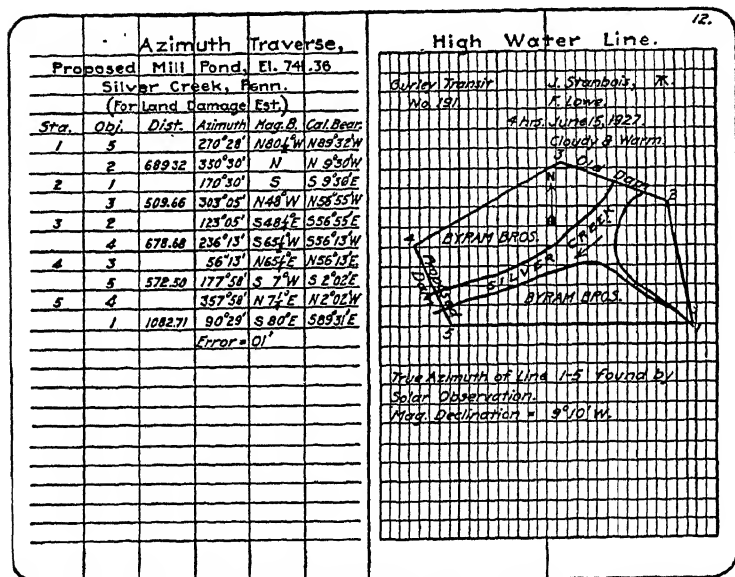 12.
Azimuth Traverse,
Proposed Mill Pond, El. 741.36
Silver Creek, Penn.
(For Land Damage Est.)
Sta. Obj. Dist. Azimuth Mag.B. Cal.Bear.
1 5 270°28' N80½°W N89°32'W
2 689.32 350°30' N N 9°30'W
2 1 170°30' S S 9°30'E
3 509.66 303°05' N48°W N56°55'W
3 2 123°05' S48½°E S56°55'E
4 678.68 236°13' S65½°W S56°13'W
4 3 56°13' N65½°E N56°13'E
5 572.50 177°58' S 7°W S 2°02'E
5 4 357°58' N7½°E N2°02'W
1 1082.71 90°29' S 80°E S89°31'E
Error = 01'
High Water Line.
Gurley Transit J. Stanbois,
No. 191. F. Lowe.
4 hrs. June 15, 1927.
Cloudy & Warm.
3 Old Dam 2
N
4 BYRAM BROS.
SILVER CREEK
Proposed Dam
BYRAM BROS.
5 1
True Azimuth of Line 1-5 found by
Solar Observation.
Mag. Declination = 9°10' W.